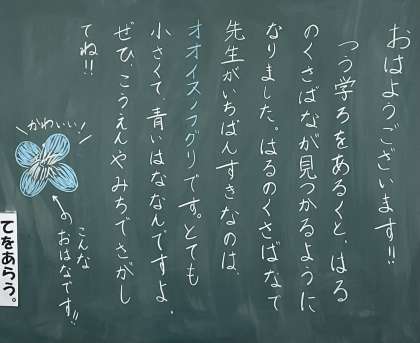 おはようございます!!
つう学ろをあるくと、はる
のくさばなが見つかるように
なりました。はるのくさばなで
先生がいちばんすきなのは、
オオイヌノフグリです。とても
小さくて、青いはななんですよ。
ぜひ、こうえんやみちでさがし
てね!!
かわいい!
こんな
おはなです!!
てをあらう。